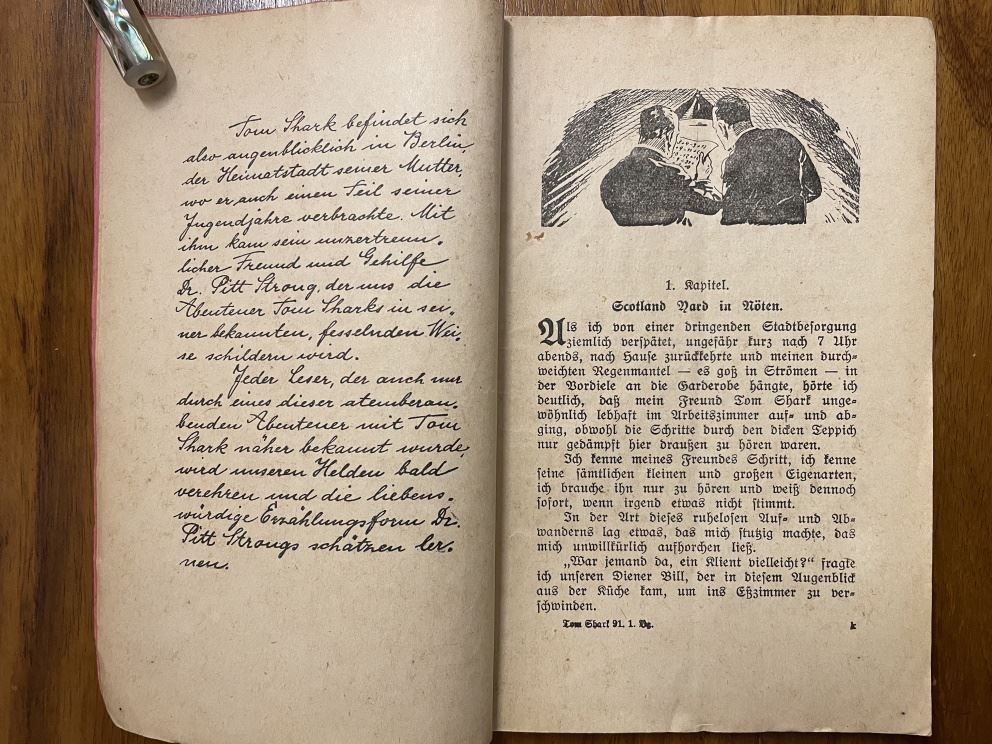 Tom Shark befindet sich
also augenblicklich in Berlin,
der Heimatstadt seiner Mutter,
wo er auch einen Teil seiner
Jugendjahre verbrachte. Mit
ihm kam sein unzertrenn-
licher Freund und Gehilfe
Dr. Pitt Strong, der uns die
Abenteuer Tom Sharks in sei-
ner bekannten, fesselnden Wei-
se schildern wird.
Jeder Leser, der auch nur
durch eines dieser atemberau-
benden Abenteuer mit Tom
Shark näher bekannt wurde,
wird unseren Helden bald
verehren und die liebens-
würdige Erzählungsform Dr.
Pitt Strongs schätzen ler-
nen.
1. Kapitel.
Scotland Yard in Nöten.
Als ich von einer dringenden Stadtbesorgung
ziemlich verspätet, ungefähr kurz nach 7 Uhr
abends, nach Hause zurückkehrte und meinen durch-
weichten Regenmantel — es goß in Strömen — in
der Vordiele an die Garderobe hängte, hörte ich
deutlich, daß mein Freund Tom Shark unge-
wöhnlich lebhaft im Arbeitszimmer auf- und ab-
ging, obwohl die Schritte durch den dicken Teppich
nur gedämpft hier draußen zu hören waren.
Ich kenne meines Freundes Schritt, ich kenne
seine sämtlichen kleinen und großen Eigenarten,
ich brauche ihn nur zu hören und weiß dennoch
sofort, wenn irgend etwas nicht stimmt.
In der Art dieses ruhelosen Auf- und Ab-
wanderns lag etwas, das mich stutzig machte, das
mich unwillkürlich aufhorchen ließ.
„War jemand da, ein Klient vielleicht?“ fragte
ich unseren Diener Bill, der in diesem Augenblick
aus der Küche kam, um ins Eßzimmer zu ver-
schwinden.
Tom Shark 91. 1. Bg. k